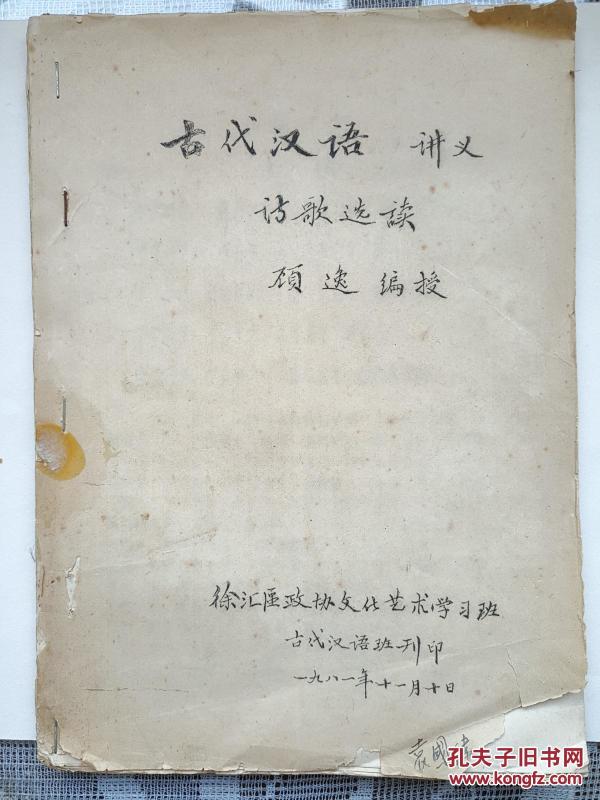 古代汉语 讲义
诗歌选读
顾逸 编授
徐汇区政协文化艺术学习班
古代汉语班刊印
一九八一年十一月十日
袁國
孔夫子旧书网
www.kongfz.com